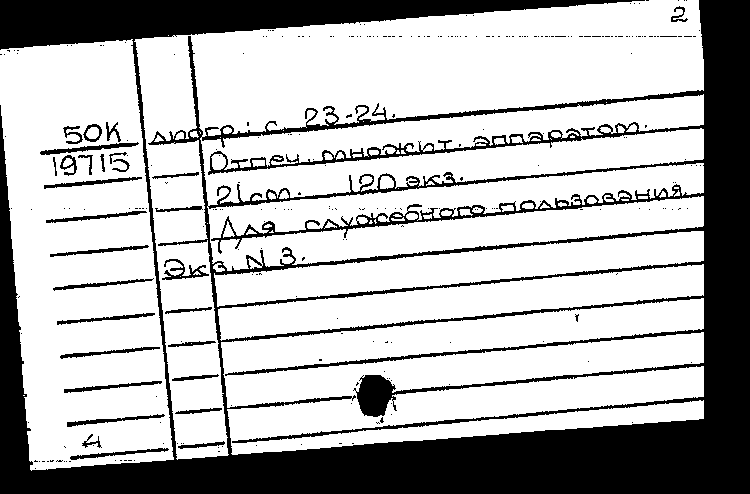 2
50К лиогр.: с. 23-24.
19715 Отпеч. множит. аппаратом.
21cm. 120 экз.
Для служебного пользования.
Экз. N 3.
4